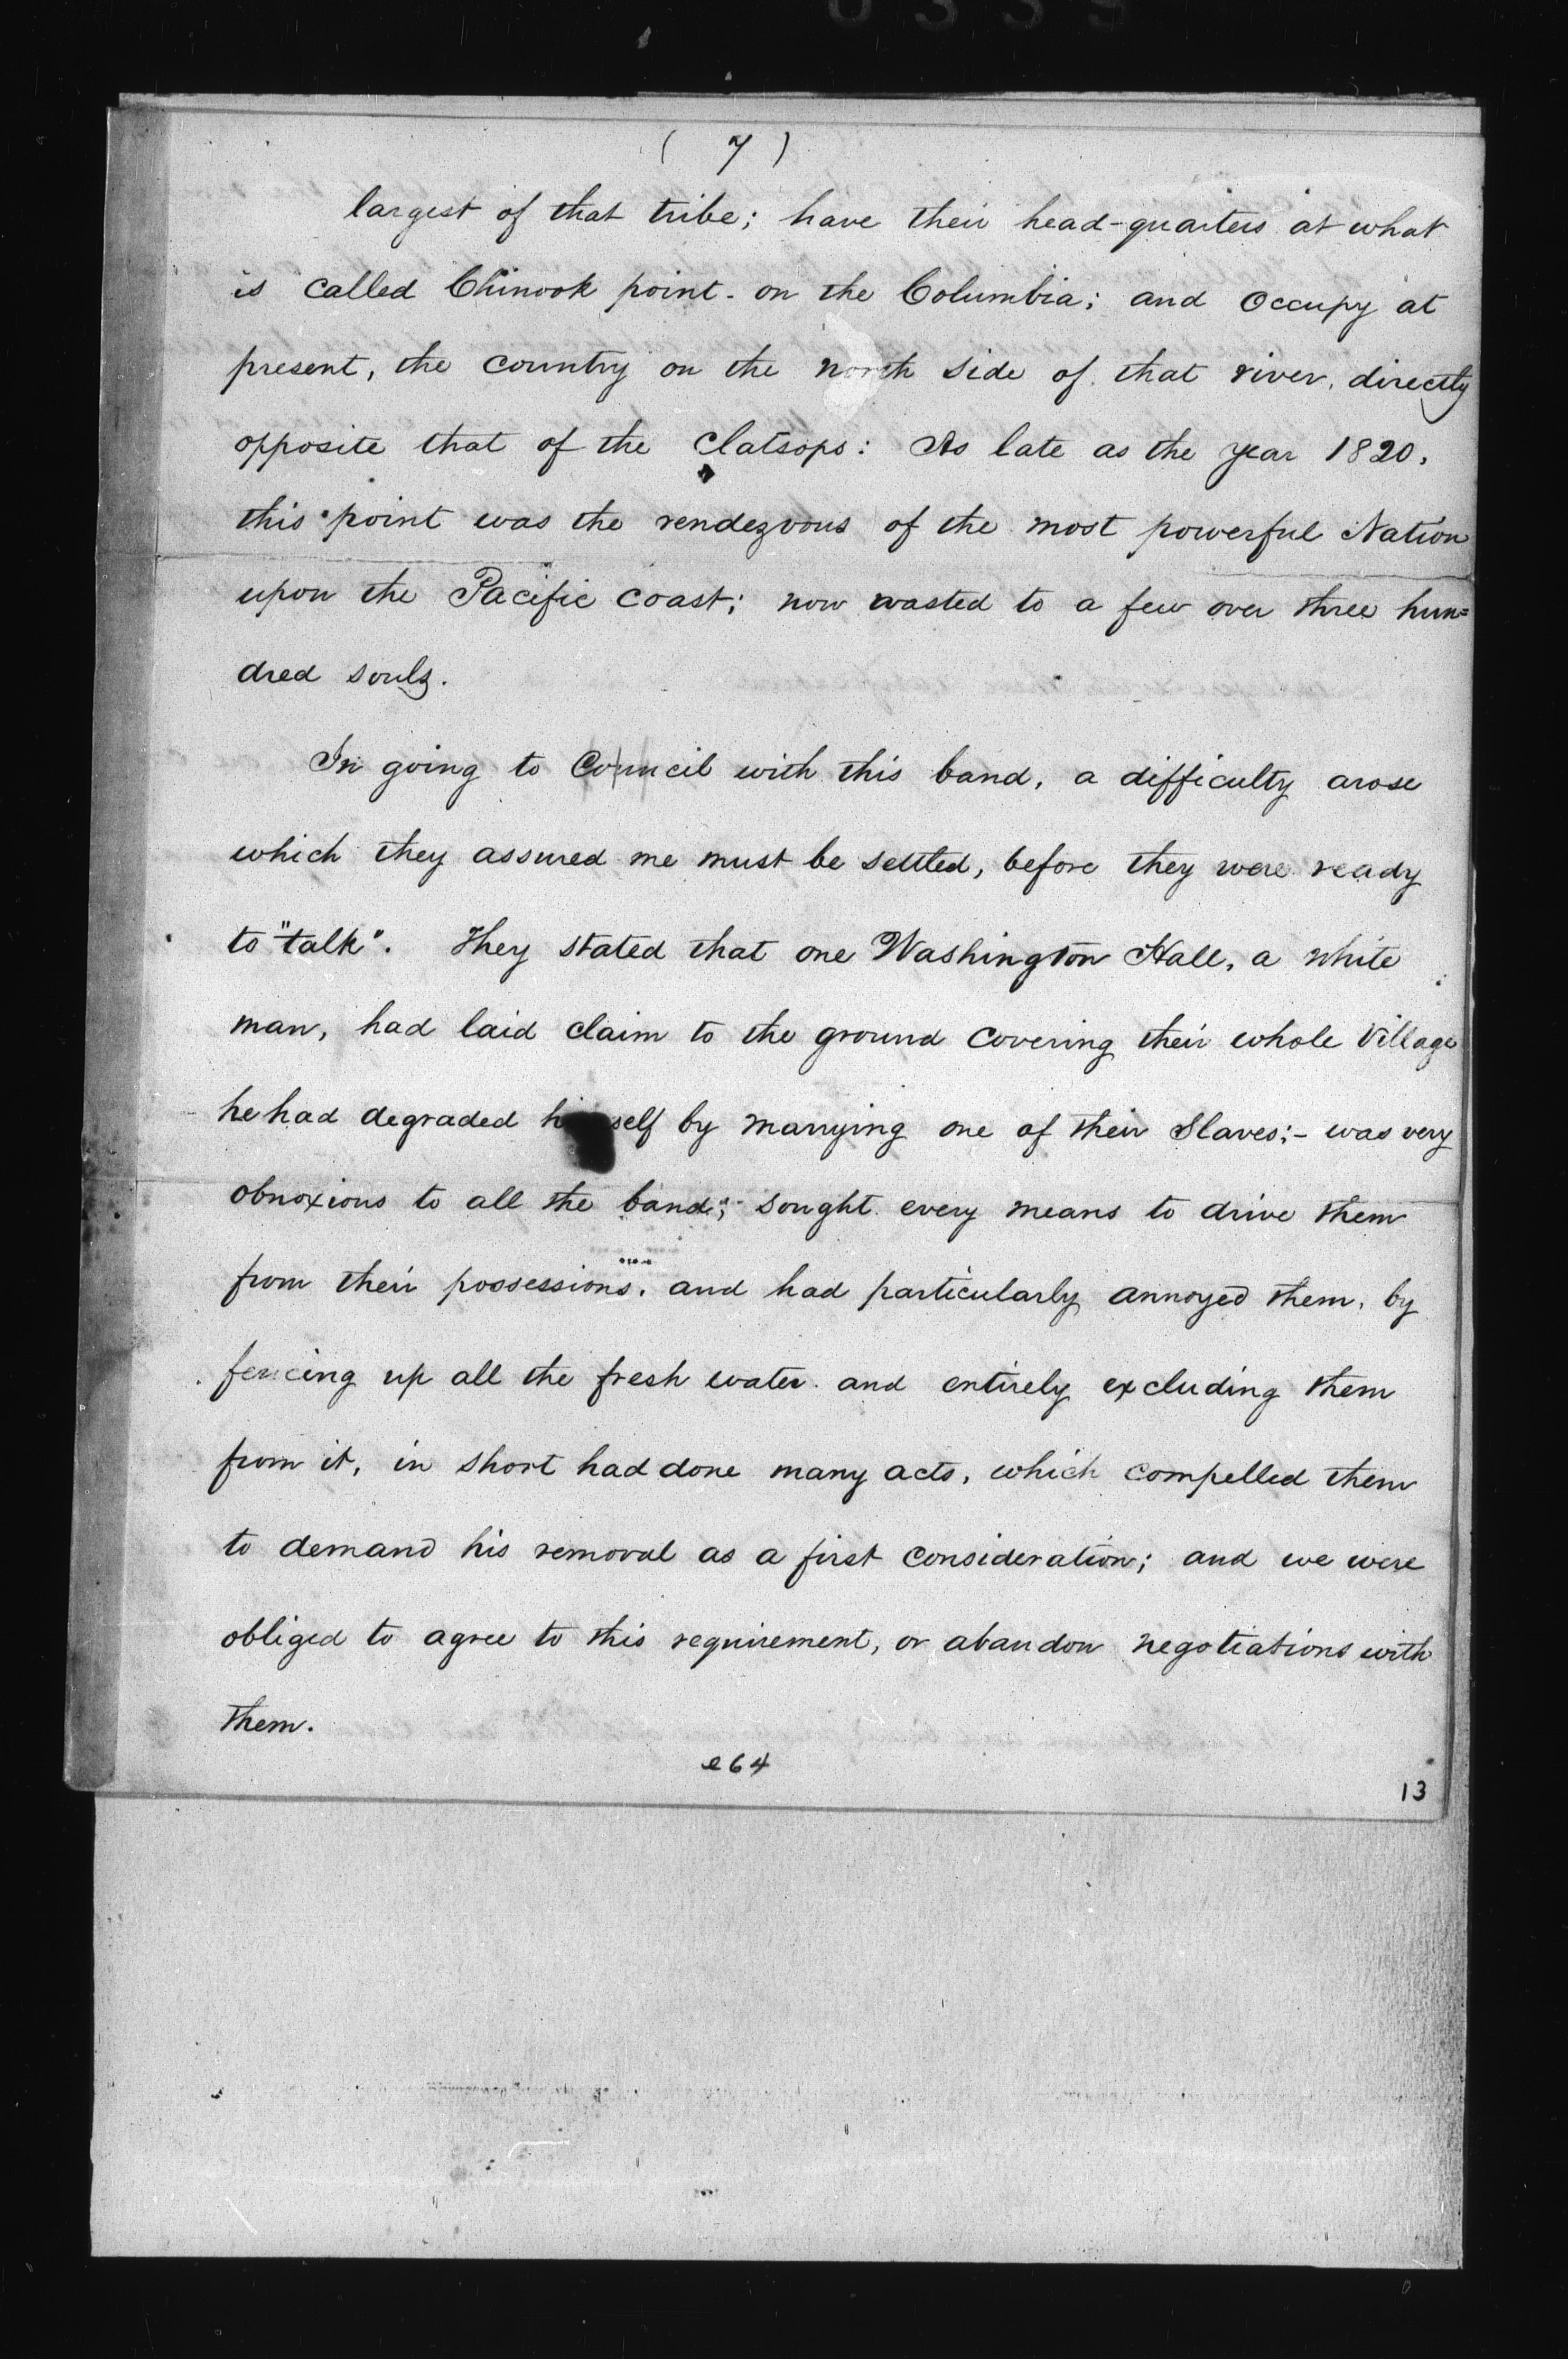 ( 7 )
largest of that tribe; have their head-quarters at what
is called Chinook point - on the Columbia; and occupy at
present, the country on the north side of that river, directly
opposite that of the Clatsops: As late as the year 1820,
this point was the rendezvous of the most powerful Nation
upon the Pacific coast; now wasted to a few over three hun=
dred souls.
In going to Council with this band, a difficulty arose
which they assured me must be settled, before they were ready
to "talk". They stated that one Washington Hall, a white
man, had laid claim to the ground covering their whole Village
he had degraded himself by marrying one of their Slaves;- was very
obnoxious to all the band;- sought every means to drive them
from their possessions, and had particularly annoyed them, by
fencing up all the fresh water and entirely excluding them
from it, in short had done many acts, which compelled them
to demand his removal as a first consideration; and we were
obliged to agree to this requirement, or abandon negotiations with
them.
e64
13